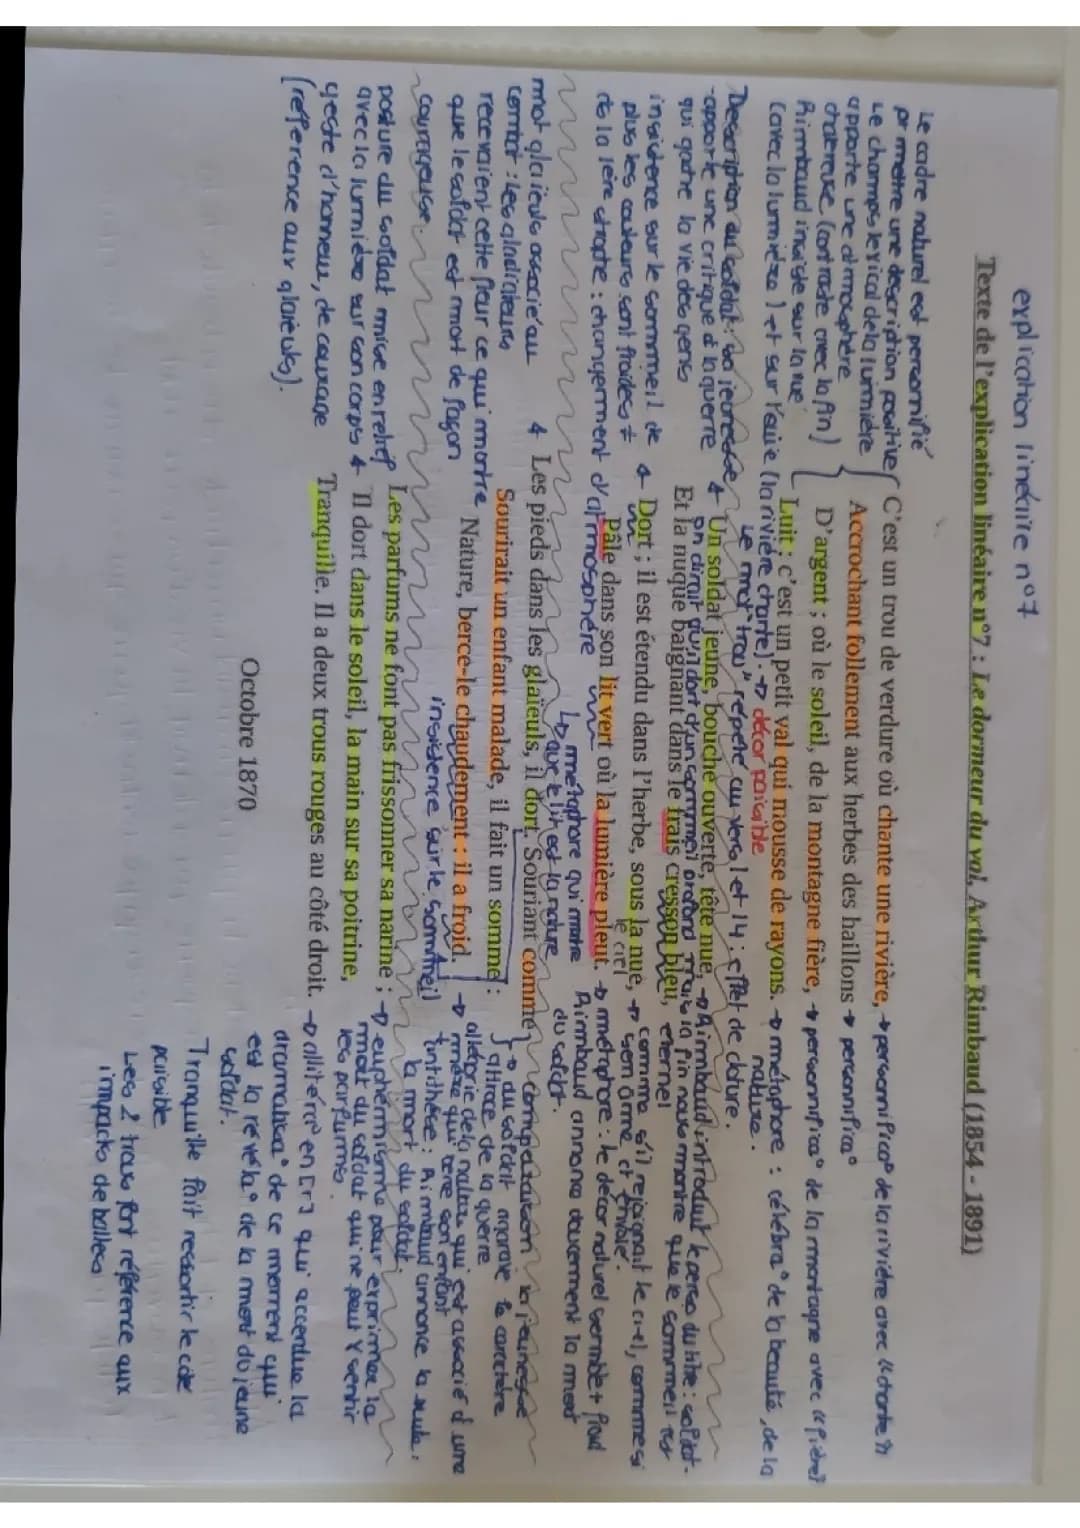 explication linéaire n°7
Texte de l'explication linéaire n°7 : Le dormeur du val, Arthur Rimbaud (1854 - 1891)
Le cadre naturel est personnifié
pr mettre une description positive
Le champs lexical de la lumière
apporte une atmosphère
chaleureuse (contraste avec la fin)
Rimbaud insiste sur la vue
(avec la lumière) et sur l'ouïe (la rivière chante). → décor paisible
C'est un trou de verdure où chante une rivière, → personnifica° de la rivière avec "chante"
Accrochant follement aux herbes des haillons → personnifica°
D'argent ; où le soleil, de la montagne fière, → personnifica° de la montagne avec "fière"
Luit : c'est un petit val qui mousse de rayons. → métaphore : célébra° de la beauté, de la
nature.
Le mot "trou" répété au vers 1 et 14 : effet de cloture.
Description du soldat : sa jeunesse
apporte une critique à la guerre
qui gache la vie des gens
Un soldat jeune, bouche ouverte, tête nue, → Rimbaud introduit le perso du titre : soldat.
on dirait qu'il dort d'un sommeil profond mais la fin nous montre que le sommeil est
Et la nuque baignant dans le frais cresson bleu, éternel
insistence sur le sommeil de
plus les couleurs sont froides ≠
de la 1ère strophe : changement d'atmosphère
Dort ; il est étendu dans l'herbe, sous la nue, → comme s'il rejoignait le ciel, comme si
le ciel
son âme, s'envole.
Pâle dans son lit vert où la lumière pleut. → métaphore : le décor naturel semble + froid
Rimbaud annonce doucement la mort
du soldat.
↳ métaphore qui montre
que le lit est la nature
mot glaïeuls associé au
combat : les gladiateurs
recevaient cette fleur ce qui montre
que le soldat est mort de façon
courageuse
Les pieds dans les glaïeuls, il dort. Souriant comme
Sourirait un enfant malade, il fait un somme :
comparaison la jeunesse
→ du soldat aggrave le caractère
atroce de la guerre
Nature, berce-le chaudement : il a froid.
insistence sur le sommeil
→ allégorie de la nature qui est associé à une
mère qui berce son enfant
antithèse : Rimbaud annonce la suite :
la mort du soldat
posture du soldat mise en relief
avec la lumière sur son corps
geste d'honneur, de courage
(référence aux glaïeuls).
Les parfums ne font pas frissonner sa narine ; → euphémisme pour exprimer la
mort du soldat qui ne peut + sentir
les parfums.
Il dort dans le soleil, la main sur sa poitrine,
Tranquille. Il a deux trous rouges au côté droit. → allitéra° en [r] qui accentue la
dramatisa° de ce moment qui
est la révéla° de la mort du jeune
soldat.
Octobre 1870
Tranquille fait ressortir le côté
paisible
Les 2 trous font référence aux
impacts de balles